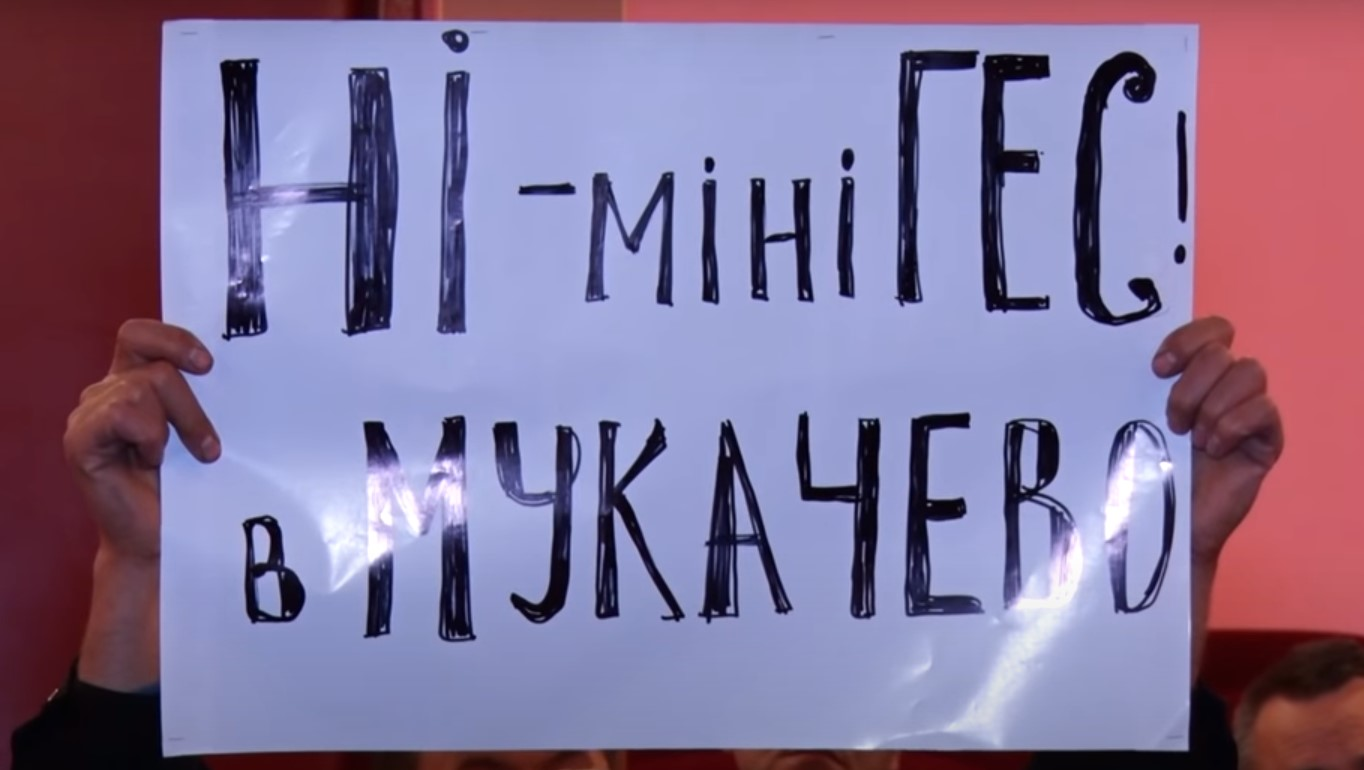 НІ -мініГЕС!
в МУКАЧЕВО